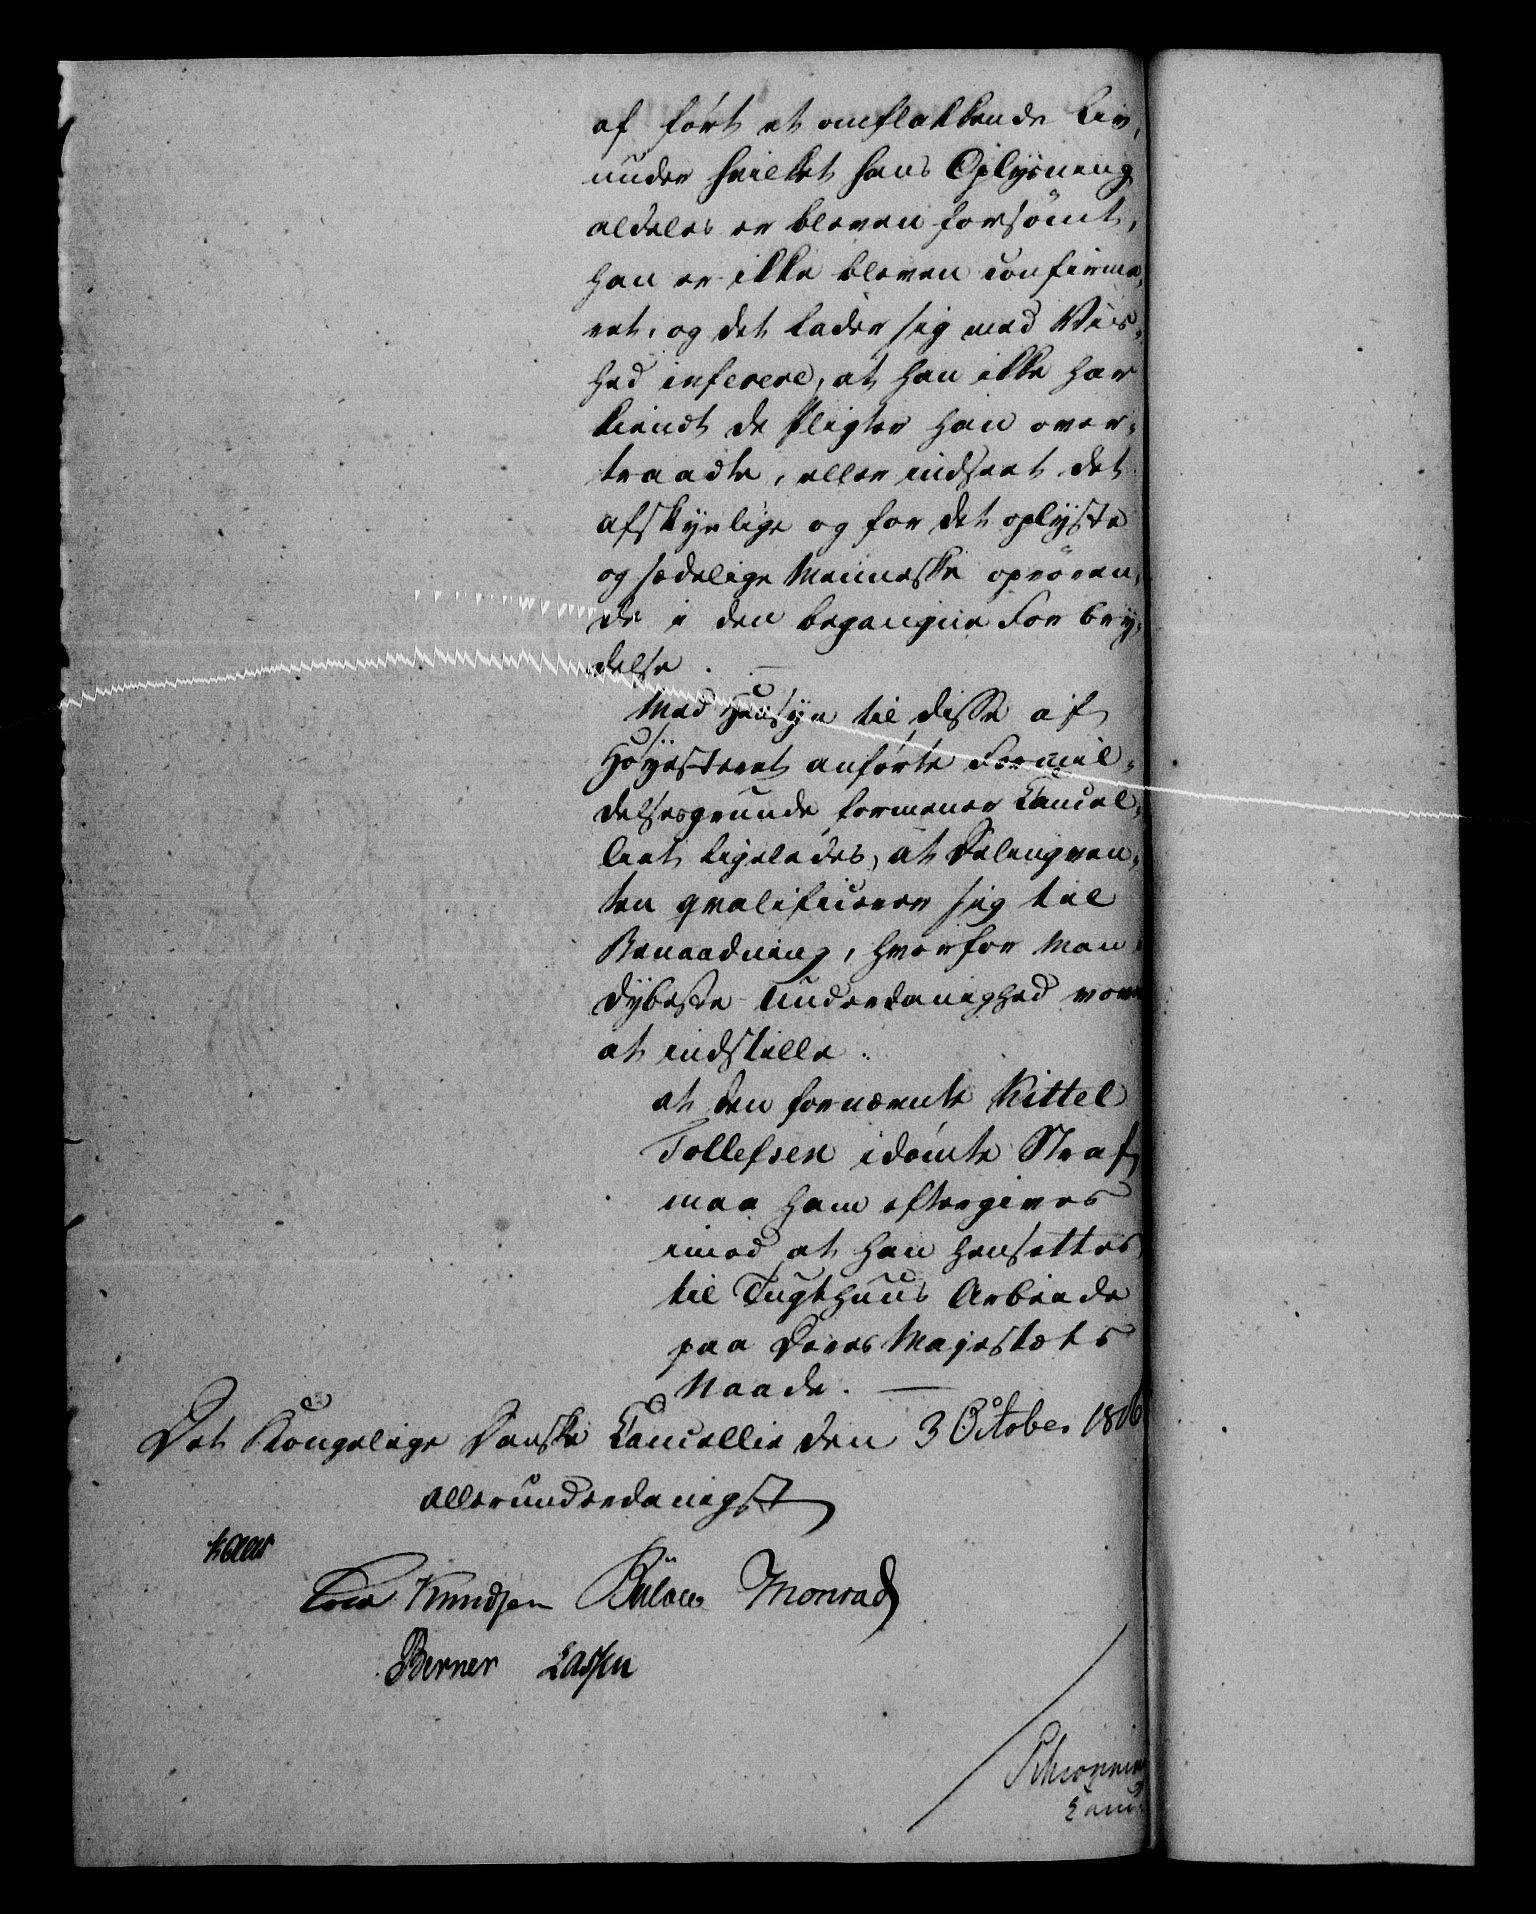 af ført et omflakkende Liv,
under hvilket hans Oplysning
aldeles er bleven forsömt,
han er ikke bleven confirme,
ret, og det lader sig med Vis,
hed inferere, at han ikke har
kiendt de Pligter han over,
traadte, eller indseet det
afskyelige og for det oplyste
og sædelige Menneske oprören,
de i den begangne Forbry,
delse. —
Med Hensyn til disse af
Höyesteret anførte Formil,
delsesgrunde formener Cancel,
liet ligeledes, at Delinqven,
ten qvalificerer sig til
Benaadning, hvorfor Man
dybeste Underdanighed vover
at indstille:
at den fornævnte Kittel
Tollefsen idømte Straf
maa ham eftergives
imod at han hensettes
til Tugthuus Arbeide
paa Deres Majestæts
Naade. —
Det Kongelige Danske Cancellie den 3 October 1806
allerunderdanigst
Kaas
Knudsen Bülow Monrad
Berner Lassen